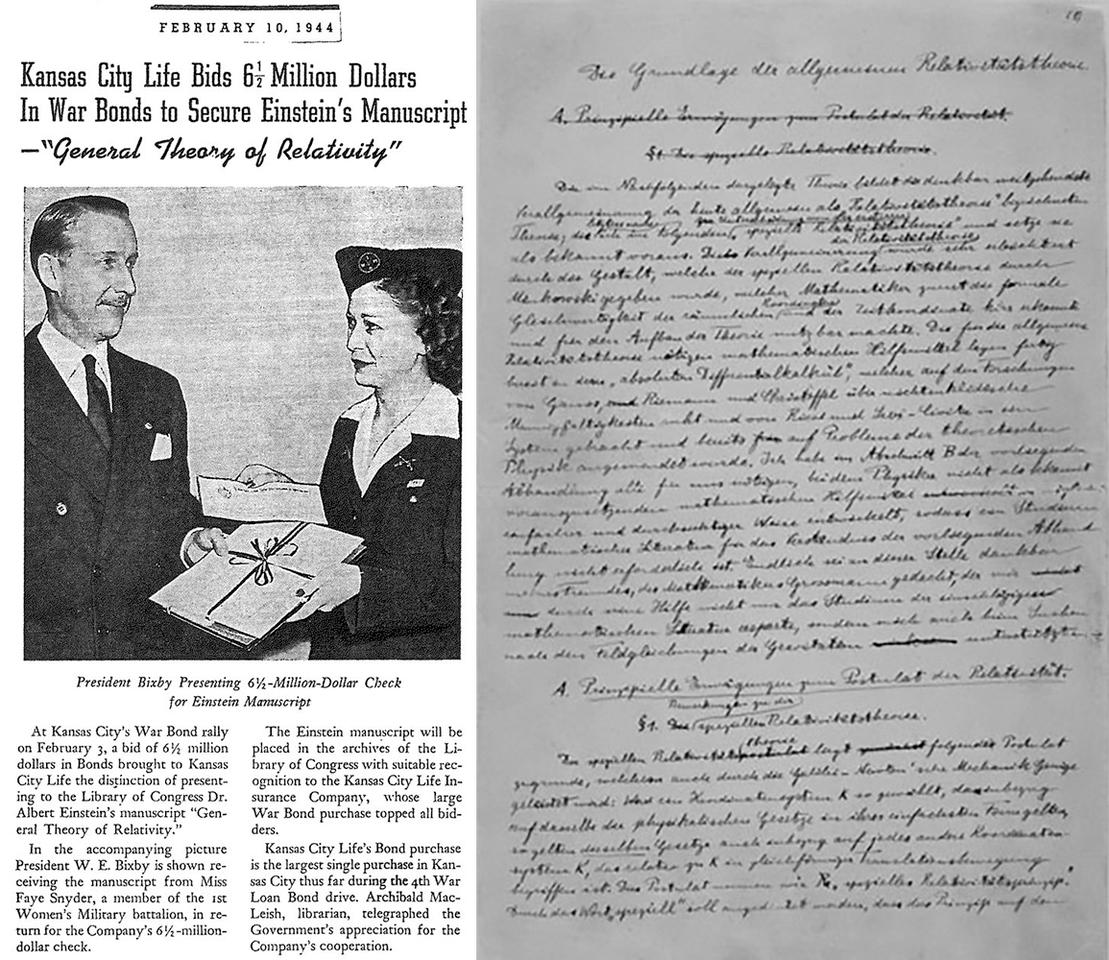 FEBRUARY 10, 1944
Kansas City Life Bids 6½ Million Dollars
In War Bonds to Secure Einstein's Manuscript
—"General Theory of Relativity"
President Bixby Presenting 6½-Million-Dollar Check
for Einstein Manuscript
At Kansas City's War Bond rally
on February 3, a bid of 6½ million
dollars in Bonds brought to Kansas
City Life the distinction of present-
ing to the Library of Congress Dr.
Albert Einstein's manuscript "Gen-
eral Theory of Relativity."
In the accompanying picture
President W. E. Bixby is shown re-
ceiving the manuscript from Miss
Faye Snyder, a member of the 1st
Women's Military battalion, in re-
turn for the Company's 6½-million-
dollar check.
The Einstein manuscript will be
placed in the archives of the Li-
brary of Congress with suitable rec-
ognition to the Kansas City Life In-
surance Company, whose large
War Bond purchase topped all bid-
ders.
Kansas City Life's Bond purchase
is the largest single purchase in Kan-
sas City thus far during the 4th War
Loan Bond drive. Archibald Mac-
Leish, librarian, telegraphed the
Government's appreciation for the
Company's cooperation.
Die Grundlage der allgemeinen Relativitätstheorie.
A. Prinzipielle Erwägungen zum Postulat der Relativität.
§1. Die spezielle Relativitätstheorie.
Die im Nachfolgenden dargelegte Theorie bildet die denkbar weitgehendste
Verallgemeinerung der heute allgemein als „Relativitätstheorie" bezeichneten
Theorie; die im folgenden „spezielle Relativitätstheorie" und setze sie
als bekannt voraus. Die Verallgemeinerung der Relativitätstheorie wurde sehr erleichtert
durch die Gestalt, welche der speziellen Relativitätstheorie durch
Minkowski gegeben wurde, welcher Mathematiker zuerst die formale
Gleichwertigkeit der räumlichen Koordinaten und der Zeitkoordinate klar erkannte
und für den Aufbau der Theorie nutzbar machte. Die für die allgemeine
Relativitätstheorie nötigen mathematischen Hilfsmittel lagen fertig
bereit in dem „absoluten Differentialkalkül", welcher auf den Forschungen
von Gauss, und Riemann und Christoffel über nichteuklidische
Mannigfaltigkeiten ruht und von Ricci und Levi-Civita in ein
System gebracht und bereits auf Probleme der theoretischen
Physik angewendet wurde. Ich habe im Abschnitt B der vorliegenden
Abhandlung alle für uns nötigen, bei dem Physiker nicht als bekannt
vorauszusetzenden mathematischen Hilfsmittel in möglichst
einfacher und durchsichtiger Weise entwickelt, sodass ein Studium
mathematischer Literatur für das Verständnis der vorliegenden Abhand
lung nicht erforderlich ist. Endlich sei an dieser Stelle dankbar
meines Freundes, des Mathematikers Grossmann gedacht, der mir
durch seine Hilfe nicht nur das Studium der einschlägigen
mathematischen Literatur ersparte, sondern mich auch beim Suchen
nach den Feldgleichungen der Gravitation unterstützte.
A. Prinzipielle Erwägungen zum Postulat der Relativität.
§1. Die Bemerkungen zu der speziellen Relativitätstheorie.
Der speziellen Relativitätstheorie liegt folgendes Postulat
zugrunde, welchem auch durch die Galilei-Newton'sche Mechanik Genüge
geleistet wird: Wird ein Koordinatensystem K so gewählt, dass inbezug
auf dasselbe die physikalischen Gesetze in ihrer einfachsten Form gelten,
so gelten dieselben Gesetze auch inbezug auf jedes andere Koordinaten-
system K', das relativ zu K in gleichförmiger Translationsbewegung
begriffen ist. Dies Postulat nennen wir „spezielles Relativitätsprinzip".
Durch das Wort „speziell" soll angedeutet werden, dass das Prinzip auf den